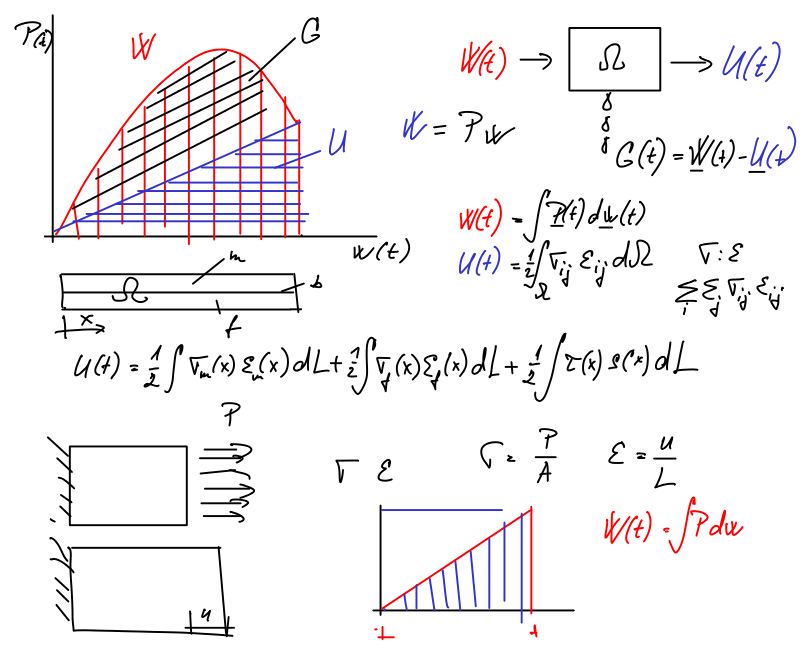 P(t)
W
G
U
w(t)
W(t) → Ω → U(t)
G(t) = W(t) - U(t)
W = P w
W(t) = ∫ P(t) dw(t)
U(t) = 1/2 ∫_Ω σ_ij ε_ij dΩ
σ : ε
Σ_i Σ_j σ_ij ε_ij
m
Ω
b
x
f
U(t) = 1/2 ∫ σ_m(x) ε_m(x) dL + 1/2 ∫ σ_f(x) ε_f(x) dL + 1/2 ∫ τ(x) s(x) dL
P
σ ε
σ = P/A
ε = u/L
W(t) = ∫ P dw
u